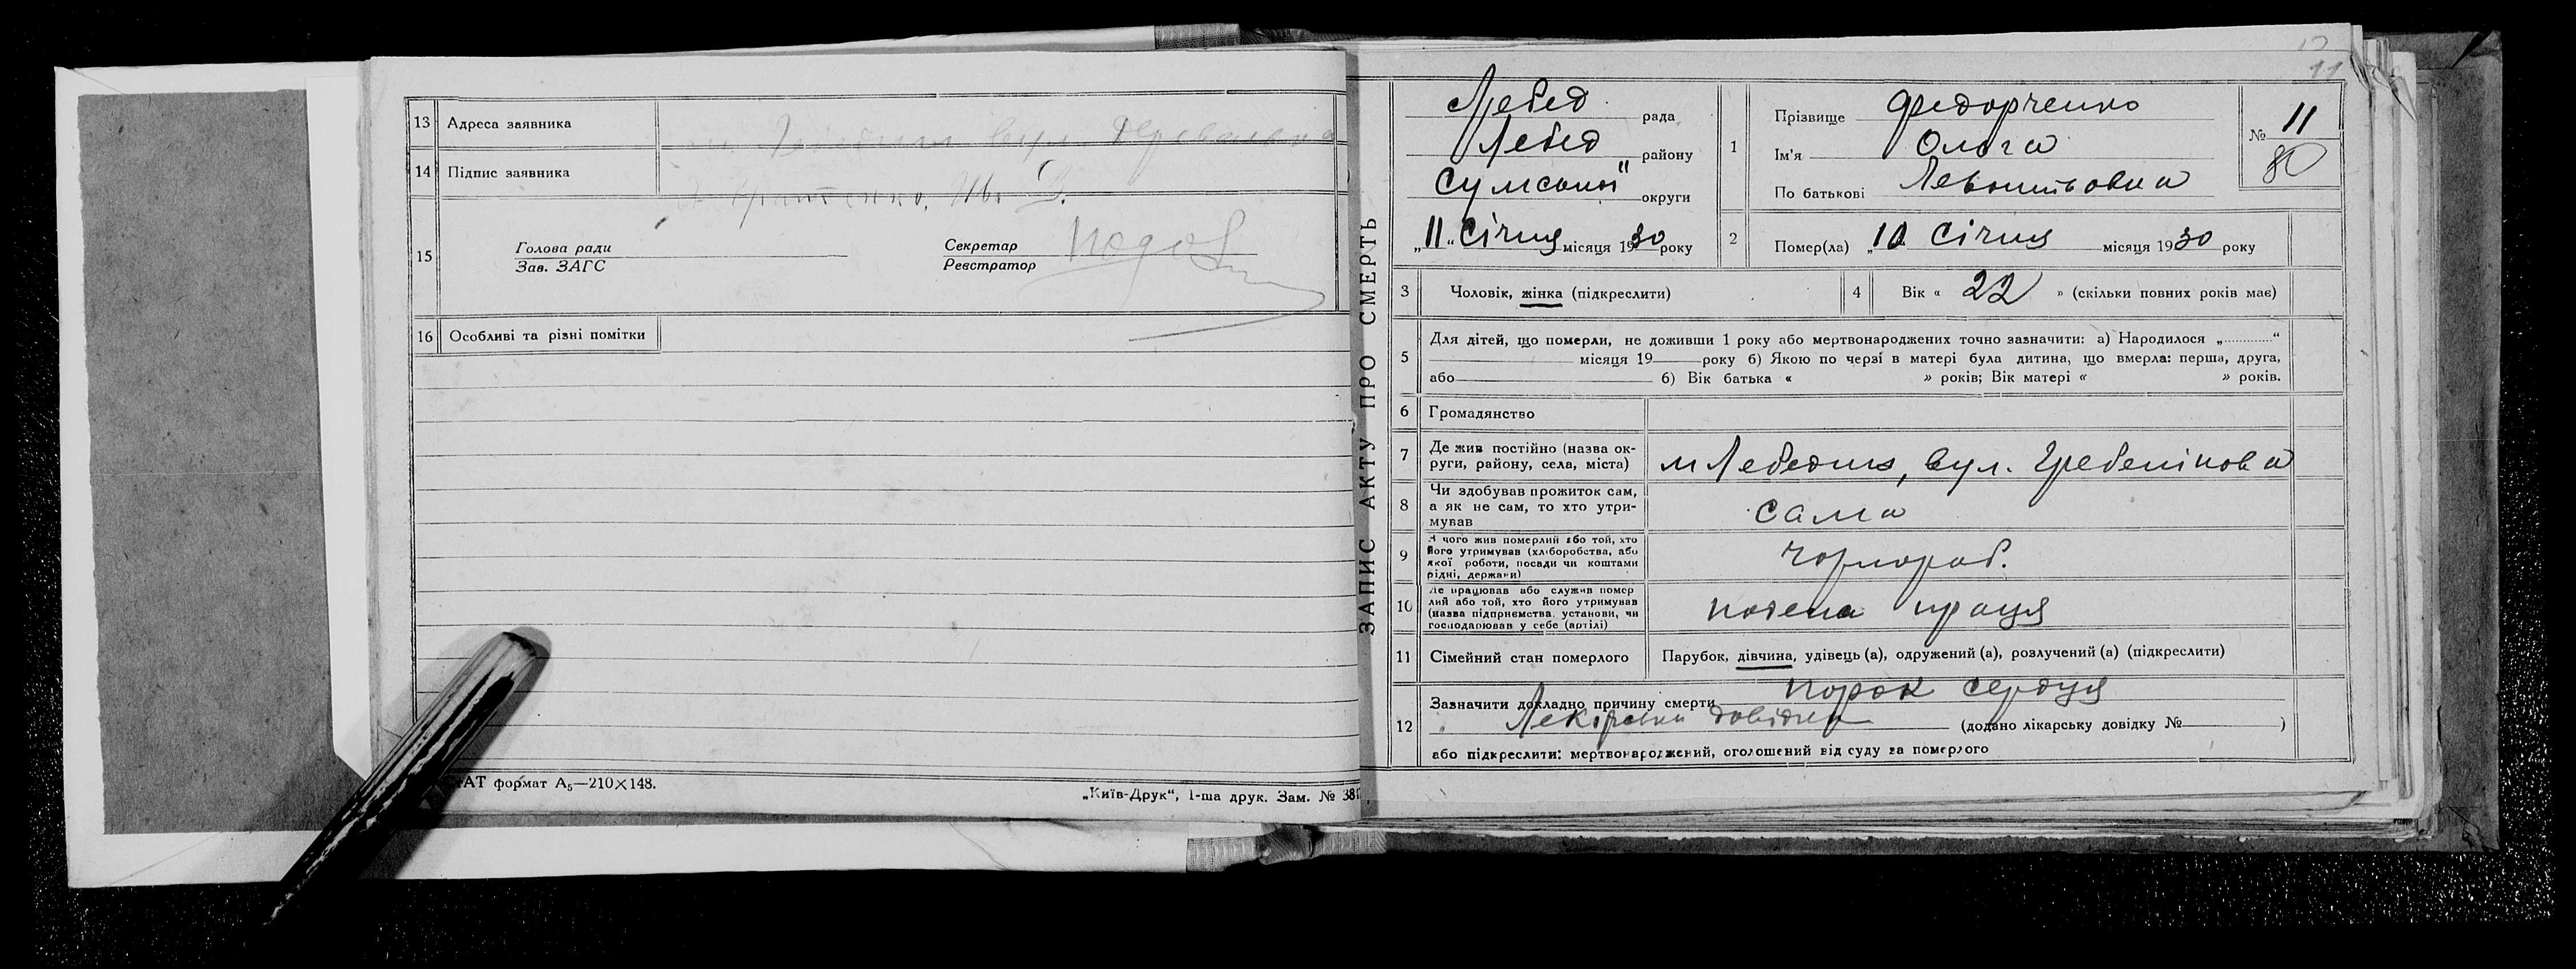 13 Адреса заявника
14 Підпис заявника
15 Голова ради
Зав. ЗАГС
Секретар
Реєстратор
16 Особливі та різні помітки
АТ формат А5—210×148.
„Київ-Друк“, 1-ша друк. Зам. № 381
ЗАПИС АКТУ ПРО СМЕРТЬ
11
Лебед. рада
Лебед району
Сумської округи
„11“ Січня місяця 1930 року
1 Прізвище Федорченко
Ім'я Ольга
По батькові
№ 11
80
2 Помер(ла) „10 Січня місяця 1930 року
3 Чоловік, жінка (підкреслити)
4 Вік « 22 » (скільки повних років має)
5 Для дітей, що померли, не доживши 1 року або мертвонароджених точно зазначити: а) Народилося „............“
місяця 19 року б) Якою по черзі в матері була дитина, що вмерла: перша, друга,
або б) Вік батька « » років; Вік матері « » років.
6 Громадянство
7 Де жив постійно (назва ок-
руги, району, села, міста)
м Лебедин, вул. Гребенікова
8 Чи здобував прожиток сам,
а як не сам, то хто утри-
мував
сама
9 З чого жив померлий або той, хто
його утримував (хліборобства, або
якої роботи, посади чи коштами
рідні, держави)
чорнороб.
10 Де працював або служив помер
лий або той, хто його утримував
(назва підприємства, установи, чи
господарював у себе (артілі)
праця
11 Сімейний стан померлого
Парубок, дівчина, удівець (а), одружений (а), розлучений (а) (підкреслити)
12 Зазначити докладно причину смерти порок серця
довідка (додано лікарську довідку № )
або підкреслити: мертвонароджений, оголошений від суду за померлого